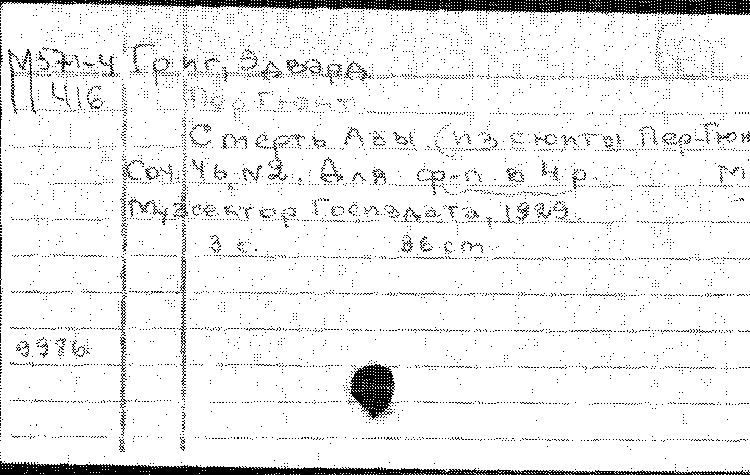 М571-4 Григ, Эдвард
П 416 Пер Гюнт
Смерть Азы (из сюиты Пер-Гюн
Соч. 46, N2. Для ф-п в 4 р. М
Музсектор Госиздата, 1929
3 с. 36 cm
9976